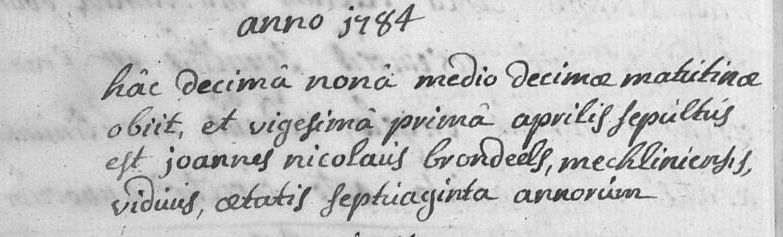 anno 1784
hâc decimâ nonâ medio decimæ matutinæ
obiit, et vigesimâ primâ aprilis sepultus
est joannes nicolaus brondeels, mechliniensis,
viduus, ætatis septuaginta annorum